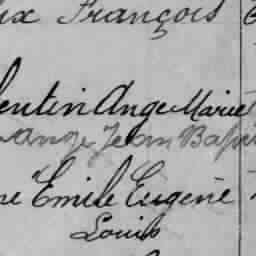 ix François
lentin Ange Marie
ange Jean Bap
re Emile Eugène
Louis